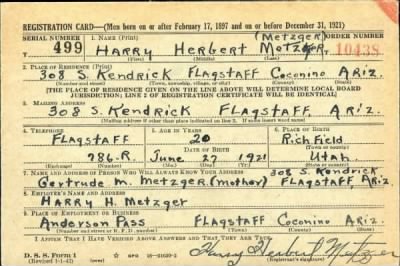 REGISTRATION CARD—(Men born on or after February 17, 1897 and on or before December 31, 1921)
SERIAL NUMBER 1. NAME (Print) (Metzger) ORDER NUMBER
499 HARRY Herbert Metzger 10438
(First) (Middle) (Last)
2. PLACE OF RESIDENCE (Print)
308 S. Kendrick Flagstaff Coconino Ariz.
(Number and street) (Town, township, village, or city) (County) (State)
[THE PLACE OF RESIDENCE GIVEN ON THE LINE ABOVE WILL DETERMINE LOCAL BOARD
JURISDICTION; LINE 2 OF REGISTRATION CERTIFICATE WILL BE IDENTICAL]
3. MAILING ADDRESS
308 S. Kendrick Flagstaff, Ariz.
(Mailing address if other than place indicated on line 2. If same insert word same)
4. TELEPHONE 5. AGE IN YEARS 6. PLACE OF BIRTH
Flagstaff 20 Richfield
DATE OF BIRTH (Town or county)
786-R June 27 1921 Utah
(Exchange) (Number) (Mo.) (Day) (Yr.) (State or country)
7. NAME AND ADDRESS OF PERSON WHO WILL ALWAYS KNOW YOUR ADDRESS 308 S. Kendrick
Gertrude M. Metzger (mother) Flagstaff, Ariz
8. EMPLOYER'S NAME AND ADDRESS
Harry H. Metzger
9. PLACE OF EMPLOYMENT OR BUSINESS
Anderson Pass Flagstaff Coconino Ariz.
(Number and street or R. F. D. number) (Town) (County) (State)
I AFFIRM THAT I HAVE VERIFIED ABOVE ANSWERS AND THAT THEY ARE TRUE.
D. S. S. Form 1 GPO 16—21630-2 Harry Herbert Metzger
(Revised 1-1-42) (over) (Registrant's signature)